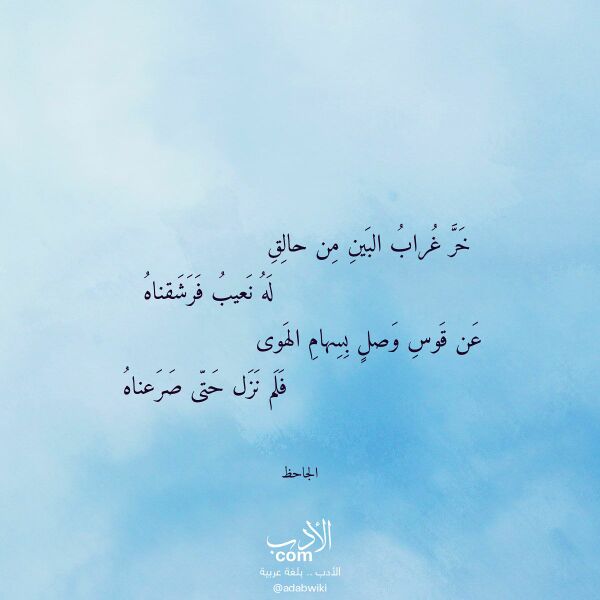 خَرَّ غُرابُ البَينِ مِن حالِقِ
لَهُ نَعيبُ فَرَشَقناهُ
عَن قَوسِ وَصلٍ بِسِهامِ الهَوى
فَلَم نَزَل حَتّى صَرَعناهُ
الجاحظ
الأدب
com
الأدب .. بلغة عربية
@adabwiki